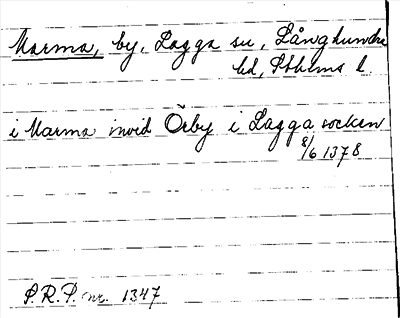 Marma, by, Lagga sn, Långhundra
hd, Sthlms l
i Marma invid Örby i Lagga socken
8/6 1378
S.R.P. nr. 1347